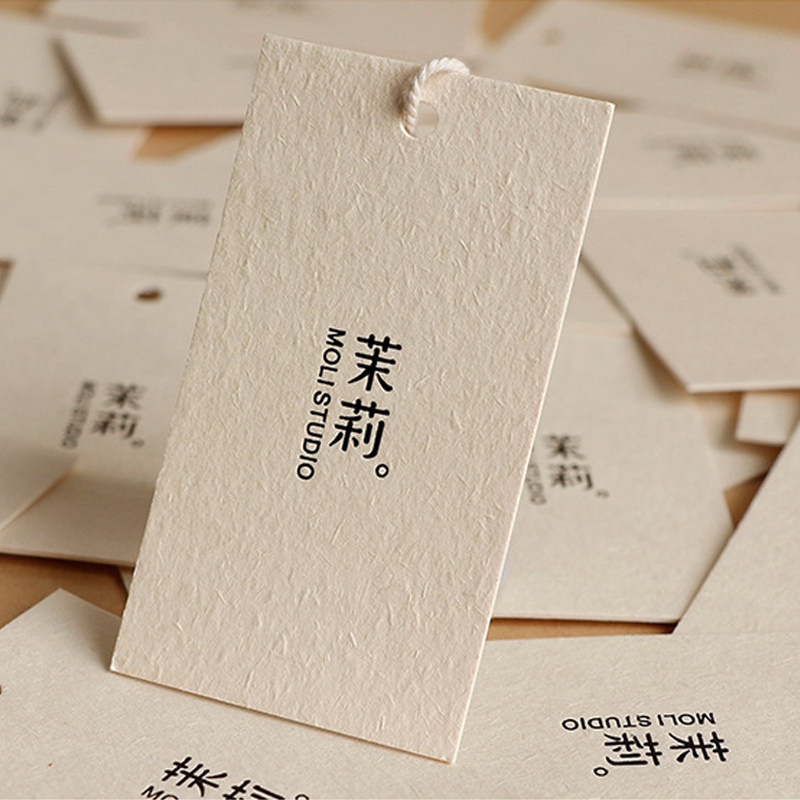 茉莉。
MOLI STUDIO
茉莉。
MOLI STUDIO
茉莉。
茉莉。
MOLI STUDIO
茉莉